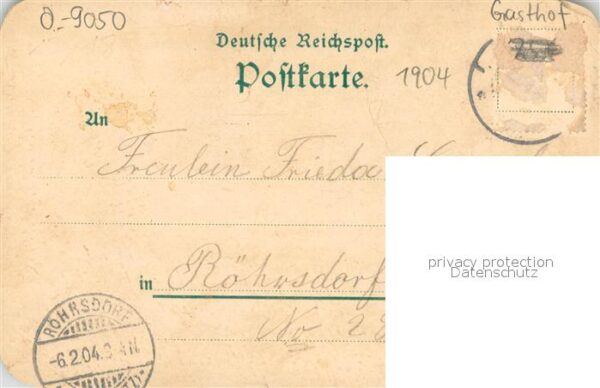 O-9050
Gasthof
Deutsche Reichspost.
Postkarte.
1904
An
Freulein Frieda
in Röhrsdorf
No 2
privacy protection
Datenschutz
RÖHRSDORF
-6.2.04.